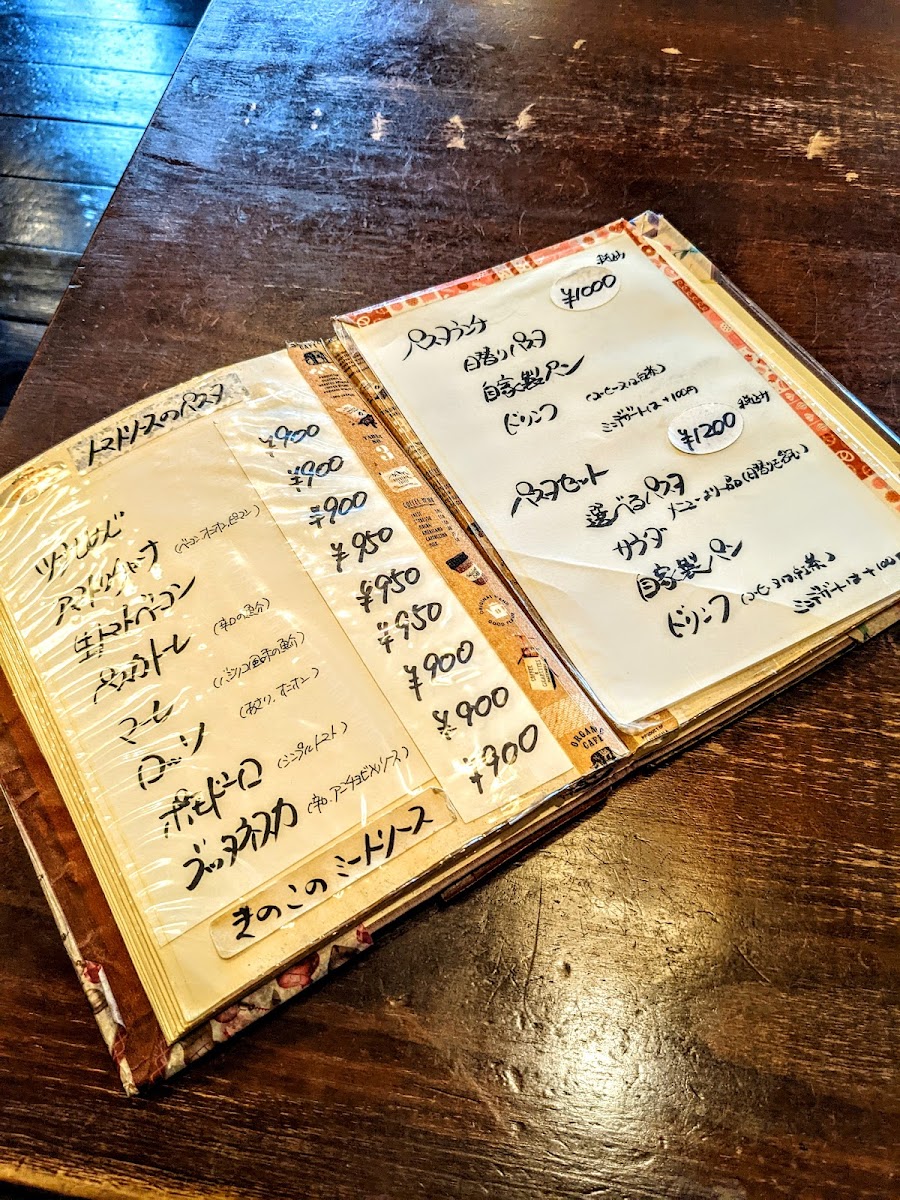 トマトソースのパスタ
ツナしめじ ¥900
アマトリチャーナ (ベーコン,オニオン,ピーマン) ¥900
生トマトベーコン ¥900
ペスカトーレ (辛口の魚介) ¥950
マーレ (バジリコ風味の魚介) ¥950
ロッソ (オニオン) ¥950
ポモドーロ (シンプルトマト) ¥900
プッタネスカ (辛口,アンチョビ入りソース) ¥900
きのこのミートソース ¥900
税込み
¥1000
パスタランチ
日替りパスタ
自家製パン
ドリンク (コーヒー又は紅茶)
ミニデザートは+100円
税込み
¥1200
パスタセット
選べるパスタ
メニューより一品(日替りも含む)
サラダ
自家製パン
ドリンク (コーヒー又は紅茶)
ミニデザートは+100
ORGANIC
CAFE